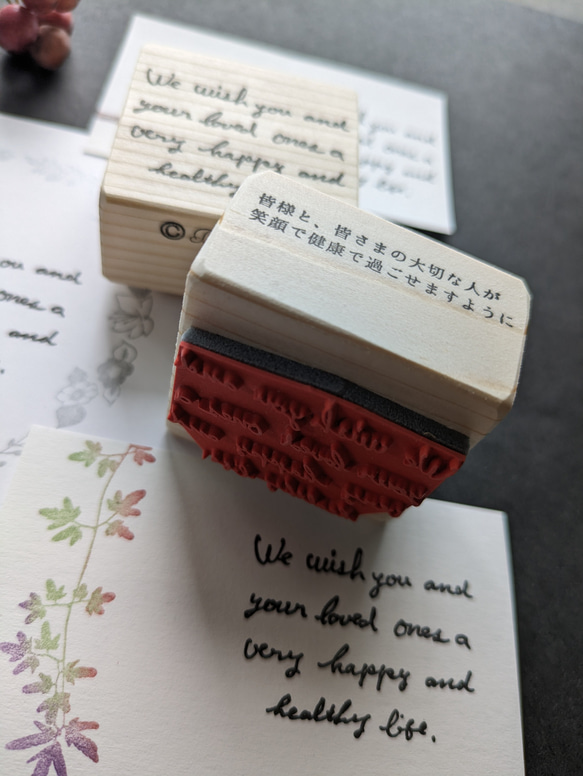 We wish you and
your loved ones a
very happy and
healthy
©
皆様と、皆さまの大切な人が
笑顔で健康で過ごせますように
ou and
ones a
and
We wish you and
your loved ones a
very happy and
healthy life.